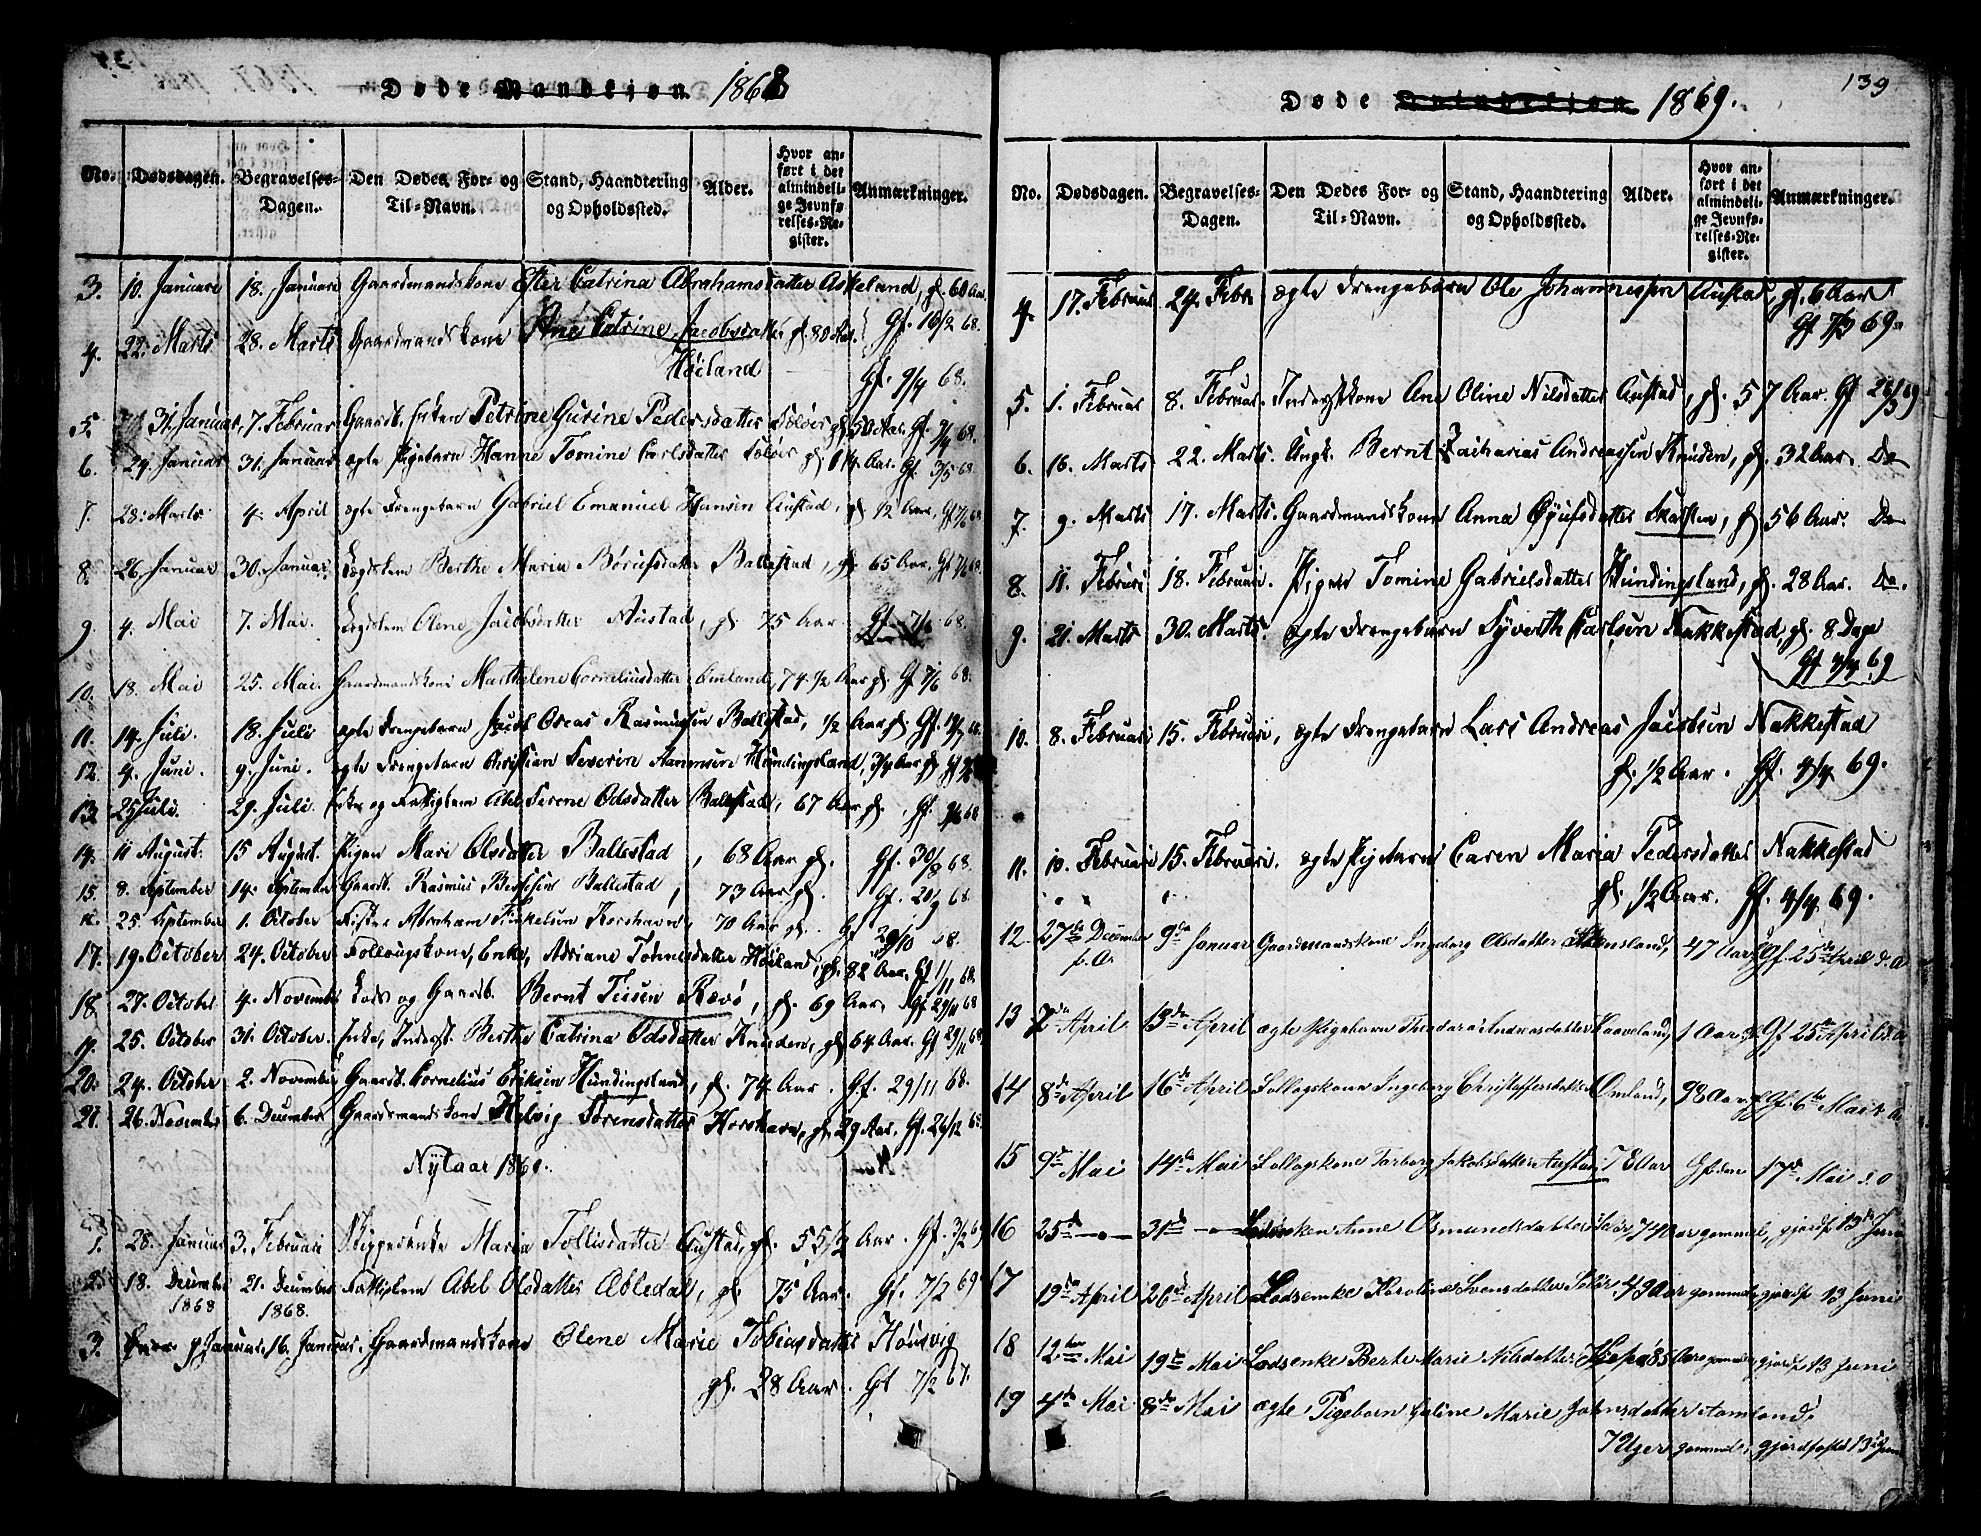 Døde Mandkiøn. 1868
No. Dødsdagen. Begravelses-Dagen. Den Dødes For- og Til-Navn. Stand, Haandtering og Opholdssted. Alder. Hvor anført i det almindelige Jevnførelses-Register. Anmærkninger.
3. 10. Januari 18. Januari Gaardmandskone Ester Catrina Abrahamsdatter Askeland, gl. 60 Aar.
4. 22. Marts 28. Marts Gaardmandskone Ane Catrine Jacobsdatter gl. 80 Aar. Gf. 10/2 68.
Høiland Gf. 9/4 68.
5. 31. Januar, 7. Februar Gaardb. Enken Petrine Gurine Pedersdatter gl. 50 Aar. Gf. 68.
6. 24. Januar 31. Januar ægte Pigebarn Hanne Tomine Carlsdatter gl. Aar. Gf. 3/5 68.
7. 28. Marts 4. April ægte Drengebarn Gabriel Emanuel Hansen Austad, gl. 12 Aar, Gf 7/6 68
8. 26. Januar 30. Januar Lægdslem Berthe Maria Ballestad, gl. 65 Aar, Gf 7/6 68.
9. 4. Mai 7. Mai. Lægdslem Olene Jacobsdatter Austad, gl. 75 Aar. Gf. 7/6 68.
10. 18. Mai 25. Mai. Gaardmandskone Marthelene Corneliusdatter Omland, 74 1/2 Aar gl. Gf 7/6 68.
11. 14. Juli. 18. Juli ægte Drengebarn Jacob Oreas Rasmussen Ballestad, 1/2 Aar gl. Gf. 68.
12. 4. Juni. 9. Juni. ægte Drengebarn Christian Severin Aanonsen Hundingsland, 3/4 Aar gl Gf
13. 25 Juli. 29. Juli. Enke og Fattiglem Abel Serene Odsdatter Ballestad, 67 Aar gl., Gf. 68
14. 11 August. 15 August. Pigen Mari Olsdatter Ballestad, 68 Aar gl. Gf. 30/8 68.
15. 8. September 14. September Gaardb. Rasmus Ballestad, 73 Aar gl. Gf. 20/9 68.
25. September 1. October Fisker Abraham Korshavn, 70 Aar gl. Gf 29/10 68.
17. 19. October 24. October Follougskone, Enke, Adriane Tønnesdatter Høiland, gl. 82 Aar, Gf 1/11 68.
18. 27. October 4. November Lods og Gaardb. Bernt Teisen Rævø, gl. 69 Aar. Gf 29/11 68
25. October 31. October. Enke, Inderst. Berthe Catrina Odsdatter Knuden, gl. 64 Aar. Gf 29/11 68
20. 24. October 2. November Gaardb. Cornelius Eriksen Hundingsland, gl. 74 Aar. Gf. 29/11 68.
21. 26. November 6. December Gaardmandskone Helvig Sørensdatter Korshavn, gl. 29 Aar, Gf. 26/12 68.
Nytaar 1869.
1. 28. Januar 3. Februari Skipperenke Maria Tollisdatter Austad, gl. 55 1/2 Aar. Gf. 3/2 69
2. 18. December 1868 21. December 1868. Fattiglem Abel Olsdatter Abledal, gl. 75 Aar. Gf. 7/2 69
3. 9 Januar, 16. Januar. Gaardmandskone Olene Marie Tobiasdatter Houvig
gl. 28 Aar. Gf 7/2 67.
139
Døde 1869.
No. Dødsdagen. Begravelses-Dagen. Den Dødes For- og Til-Navn. Stand, Haandtering og Opholdssted. Alder. Hvor anført i det almindelige Jevnførelses-Register. Anmærkninger.
4. 17. Februar 24. Febr ægte Drengebarn Ole Johannessen Austad, gl. 6 Aar
Gf 7/3 69.
5. 1. Februar 8. Februar. Inderstkone Ane Oline Nilsdatter Austad, gl. 57 Aar. Gf 69
6. 16. Marts 22. Marts. Ungk. Bernt Zacharias Andreassen Knuden, gl. 32 Aar. Do
7. 9. Marts 17. Marts. Gaardmandskone Anna Skarsten, gl 56 Aar. Do
8. 11. Februari 18. Februari. Pigen Tomine Gabrielsdatter Hundingsland, gl. 28 Aar. Do.
9. 21. Marts 30. Marts. ægte Drengebarn Syverth Carlsen Nakkestad, gl. 8 Dage
Gf 4/4 69
10. 8. Februari 15. Februari, ægte Drengebarn Lars Andreas Jacobsen Nakkestad
gl. 1/2 Aar. Gf. 4/4 69.
11. 10. Februari 15. Februari. ægte Pigebarn Caren Maria Pedersdatter Nakkestad
gl. 1/2 Aar. Gf. 4/4 69.
12 27de December f. A. 9de Januar Gaardmandskone Ingeborg Olsdatter Stensland, 47 Aar, Gf. 25de April d. A
13 7de April 13de April ægte Pigebarn Theodora Andreasdatter 1 Aar gl Gf 25de April d. A
14 8de April 16de April Follogskone Ingeborg Christoffersdatter Omland, 93 Aar gl Gf. 6te Mai d. A
15 9de Mai 14de Mai Follogskone Torborg Jakobsdatter Austad 78 Aar Gf den 17de Mai d. A
16 25de —"— 31de —"— Anne Osmundsdatter 74 Aar gammel, gjordf 13de Juni
17 19de April 26de April Lodsenke Karoline Svensdatter 49 Aar gammel, gjordf 13 Juni
18 12te Mai 19de Mai Lodsenke Berte Marie Nilsdatter 85 Aar gammel, gjordf 13 Juni
19 4de Mai 8de Mai ægte Pigebarn Marie Johnsdatter Aamland,
7 Uger gammel, gjordfæstet 13 Juni